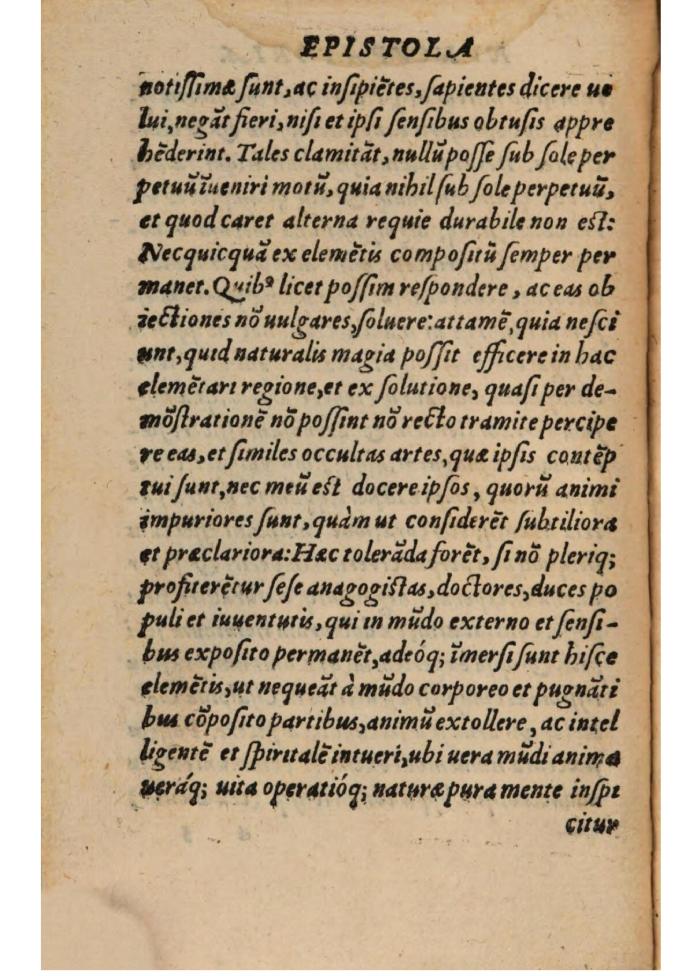 EPISTOLA
notiſſimæ ſunt, ac inſipiẽtes, ſapientes dicere uo
lui, negãt fieri, niſi et ipſi ſenſibus obtuſis appre
hẽderint. Tales clamitãt, nullũ poſſe ſub ſole per
petuũ ĩueniri motũ, quia nihil ſub ſole perpetuũ,
et quod caret alterna requie durabile non eſt:
Nec quicquã ex elemẽtis compoſitũ ſemper per
manet. Quibꝰ licet poſſim reſpondere, ac eas ob
iectiones nõ uulgares, ſoluere: attamẽ, quia neſci
unt, quid naturalis magia poſſit efficere in hac
elemẽtari regione, et ex ſolutione, quaſi per de-
mõſtrationẽ nõ poſſint nõ recto tramite percipe
re eas, et ſimiles occultas artes, quæ ipſis contẽp
tui ſunt, nec meũ eſt docere ipſos, quorũ animi
impuriores ſunt, quàm ut conſiderẽt ſubtiliora
et præclariora: Hæc tolerãda forẽt, ſi nõ pleriq;
profiterẽtur ſeſe anagogiſtas, doctores, duces po
puli et iuuentutis, qui in mũdo externo et ſenſi-
bus expoſito permanẽt, adeóq; ĩmerſi ſunt hiſce
elemẽtis, ut nequeãt à mũdo corporeo et pugnãti
bus cõpoſito partibus, animũ extollere, ac intel
ligentẽ et ſpiritalẽ intueri, ubi uera mũdi anima
ueráq; uita operatióq; naturæ pura mente inſpi
citur